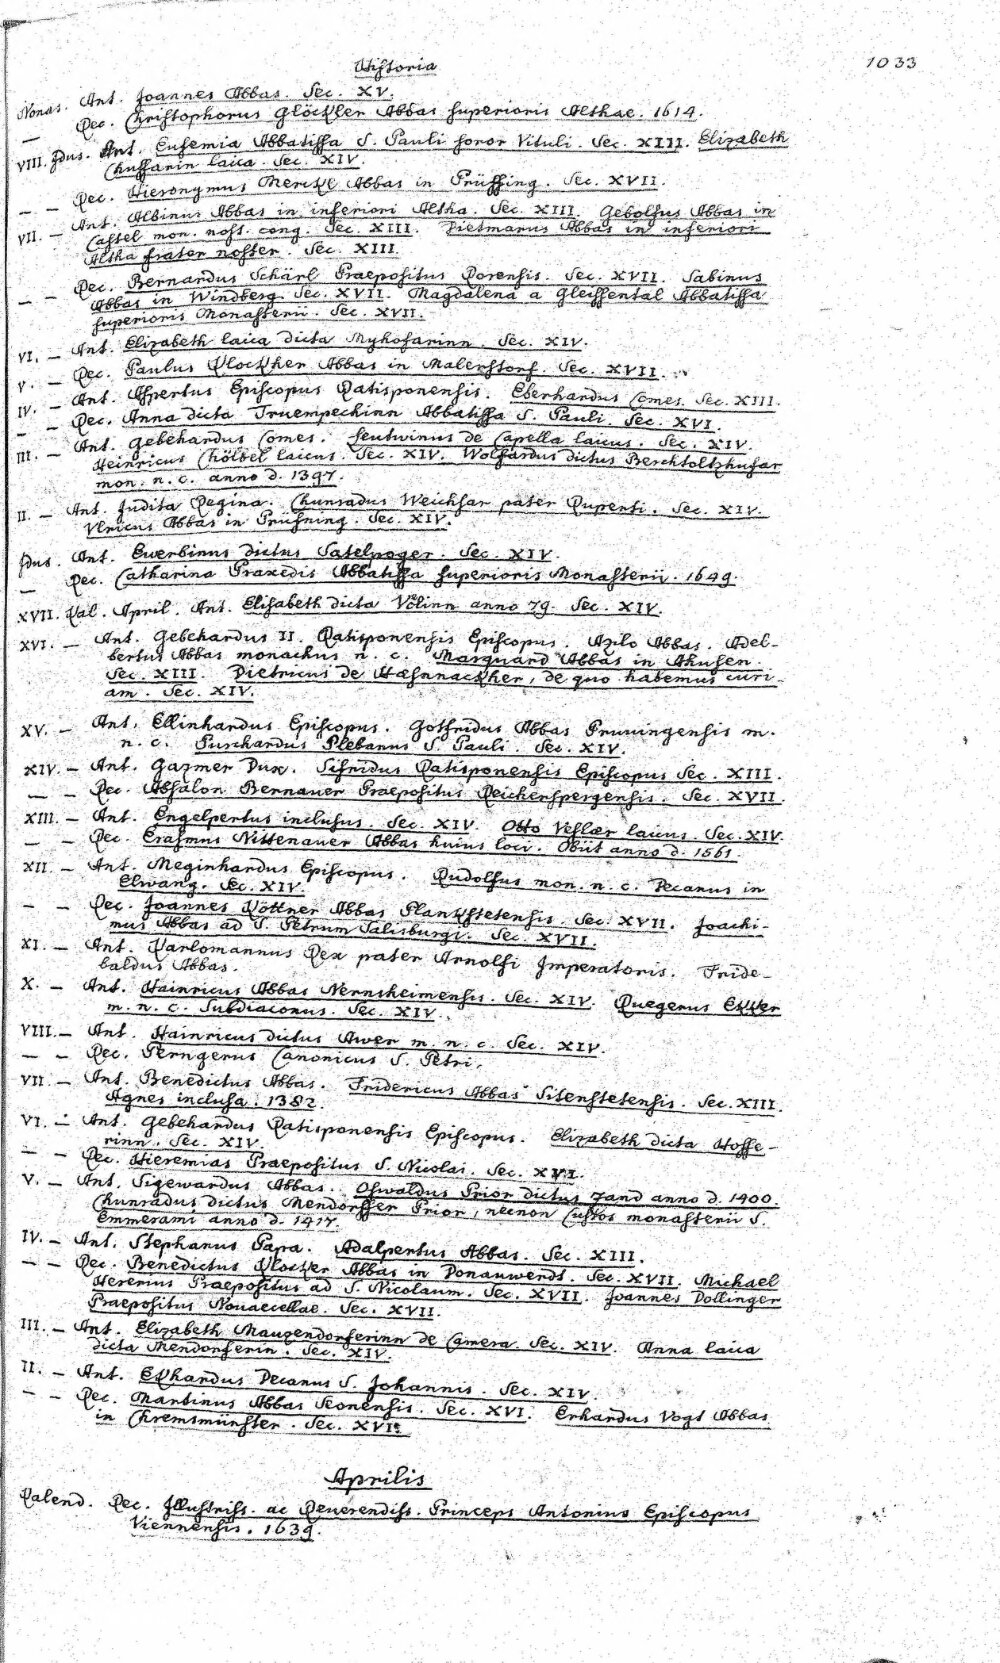 Historia
1033
Nonas. Ant. Joannes Abbas. Sec. XV.
— Rec. Christophorus Glöckler Abbas superioris Althae. 1614.
VIII. Jdus. Ant. Eufemia Abbatissa S. Pauli soror Vituli. Sec. XIII. Elizabeth
Chuffarin laica. Sec. XIV.
— — Rec. Hieronymus Merckl Abbas in Prüffing. Sec. XVII.
VII. — Ant. Albinus Abbas in inferiori Altha. Sec. XIII. Gebolfus Abbas in
Castel mon. nost. cong. Sec. XIII. Dietmarus Abbas in inferiori
Altha frater noster. Sec. XIII.
— — Rec. Bernardus Schärl Praepositus Rorensis. Sec. XVII. Sabinus
Abbas in Windberg. Sec. XVII. Magdalena a Gleissental Abbatissa
superioris Monasterii. Sec. XVII.
VI. — Ant. Elizabeth laica dicta Mykofarinn. Sec. XIV.
V. — Rec. Paulus Klockher Abbas in Malerstorf. Sec. XVII.
IV. — Ant. Aspertus Episcopus Ratisponensis. Eberhardus Comes. Sec. XIII.
— — Rec. Anna dicta Truempeckinn Abbatissa S. Pauli. Sec. XVI.
III. — Ant. Gebehardus Comes. Leutwinus de Capella laicus. Sec. XIV.
Heinricus Chölbel laicus. Sec. XIV. Wolfardus dictus Berchtoltzhufar
mon. n. c. anno d. 1397.
II. — Ant. Judita Regina. Chunradus Weichsar pater Ruperti. Sec. XIV.
Vlricus Abbas in Prufning. Sec. XIV.
Jdus. Ant. Ewerbinus dictus Satelpoger. Sec. XIV.
— Rec. Catharina Praxedis Abbatissa superioris Monasterii. 1649.
XVII. Kal. April. Ant. Elisabeth dicta Völinn anno 79. Sec. XIV.
XVI. — Ant. Gebehardus II. Ratisponensis Episcopus. Azilo Abbas. Adel-
bertus Abbas monachus n. c. Marquard Abbas in Ahusen.
Sec. XIII. Dietricus de Haesnnackher, de quo habemus curi-
am. Sec. XIV.
XV. — Ant. Ellinhardus Episcopus. Gotfridus Abbas Pruuingensis m.
n. c. Purchardus Plebanus S. Pauli. Sec. XIV.
XIV. — Ant. Gazmer Dux. Sifridus Ratisponensis Episcopus Sec. XIII.
— — Rec. Absalon Bernauer Praepositus Reichenspergensis. Sec. XVII.
XIII. — Ant. Engelpertus inclusus. Sec. XIV. Otto Veslaer laicus. Sec. XIV.
— — Rec. Erasmus Nittenauer Abbas huius loci. Obiit anno d. 1561.
XII. — Ant. Meginhardus Episcopus. Rudolfus mon. n. c. Decanus in
Elwang. Sec. XIV.
— — Rec. Joannes Köttner Abbas Plankstetensis. Sec. XVII. Joachi-
mus Abbas ad S. Petrum Salisburgi. Sec. XVII.
XI. — Ant. Karlomannus Rex pater Arnolfi Imperatoris. Fride-
baldus Abbas.
X. — Ant. Hainricus Abbas Nernsheimensis. Sec. XIV. Ruegerus Ekker
m. n. c. Subdiaconus. Sec. XIV.
VIII. — Ant. Hainricus dictus Awer m. n. c. Sec. XIV.
— — Rec. Perngerus Canonicus S. Petri.
VII. — Ant. Benedictus Abbas. Fridericus Abbas Sitenstetensis. Sec. XIII.
Agnes inclusa. 1382.
VI. — Ant. Gebehardus Ratisponensis Episcopus. Elizabeth dicta Hoffe-
rinn. Sec. XIV.
— — Rec. Hieremias Praepositus S. Nicolai. Sec. XVI.
V. — Ant. Sigewardus Abbas. Oswaldus Prior dictus Zand anno d. 1400.
Chunradus dictus Mendorffer Prior, necnon Custos monasterii S.
Emmerami anno d. 1417.
IV. — Ant. Stephanus Papa. Adalpertus Abbas. Sec. XIII.
— — Rec. Benedictus Klocker Abbas in Donauwerdt. Sec. XVII. Michael
Hererius Praepositus ad S. Nicolaum. Sec. XVII. Joannes Dollinger
Praepositus Nouaecellae. Sec. XVII.
III. — Ant. Elizabeth Mauxendorferinn de Camera Sec. XIV. Anna laica
dicta Mendorferin. Sec. XIV.
II. — Ant. Ekhardus Decanus S. Johannis. Sec. XIV.
— — Rec. Martinus Abbas Seonensis. Sec. XVI. Erhardus Vogt Abbas
in Chremsmünster. Sec. XVI.
Aprilis
Kalend. Rec. Illustriss. ac Reuerendiss. Princeps Antonius Episcopus
Viennensis. 1639.